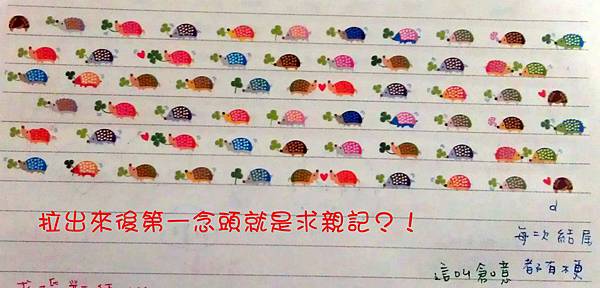 拉出來後第一念頭就是求親記?!
d
每次結尾
都有梗
這叫創意